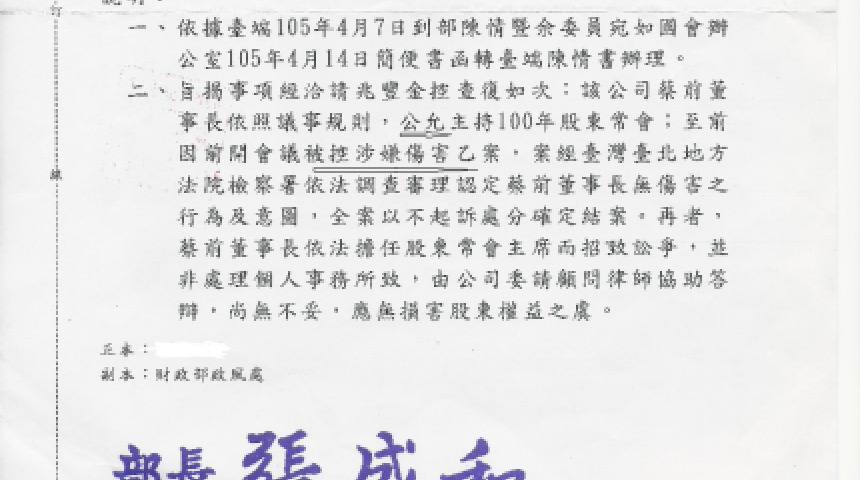 說明：
一、依據臺端105年4月7日到部陳情暨余委員宛如國會辦
公室105年4月14日簡便書函轉臺端陳情書辦理。
二、旨揭事項經洽請兆豐金控查復如次：該公司蔡前董
事長依照議事規則，公允主持100年股東常會；至前
因前開會議被控涉嫌傷害乙案，案經臺灣臺北地方
法院檢察署依法調查審理認定蔡前董事長無傷害之
行為及意圖，全案以不起訴處分確定結案。再者，
蔡前董事長依法擔任股東常會主席而招致訟爭，並
非處理個人事務所致，由公司委請顧問律師協助答
辯，尚無不妥，應無損害股東權益之虞。
正本：
副本：財政部政風處
部長 張盛和
訂
線